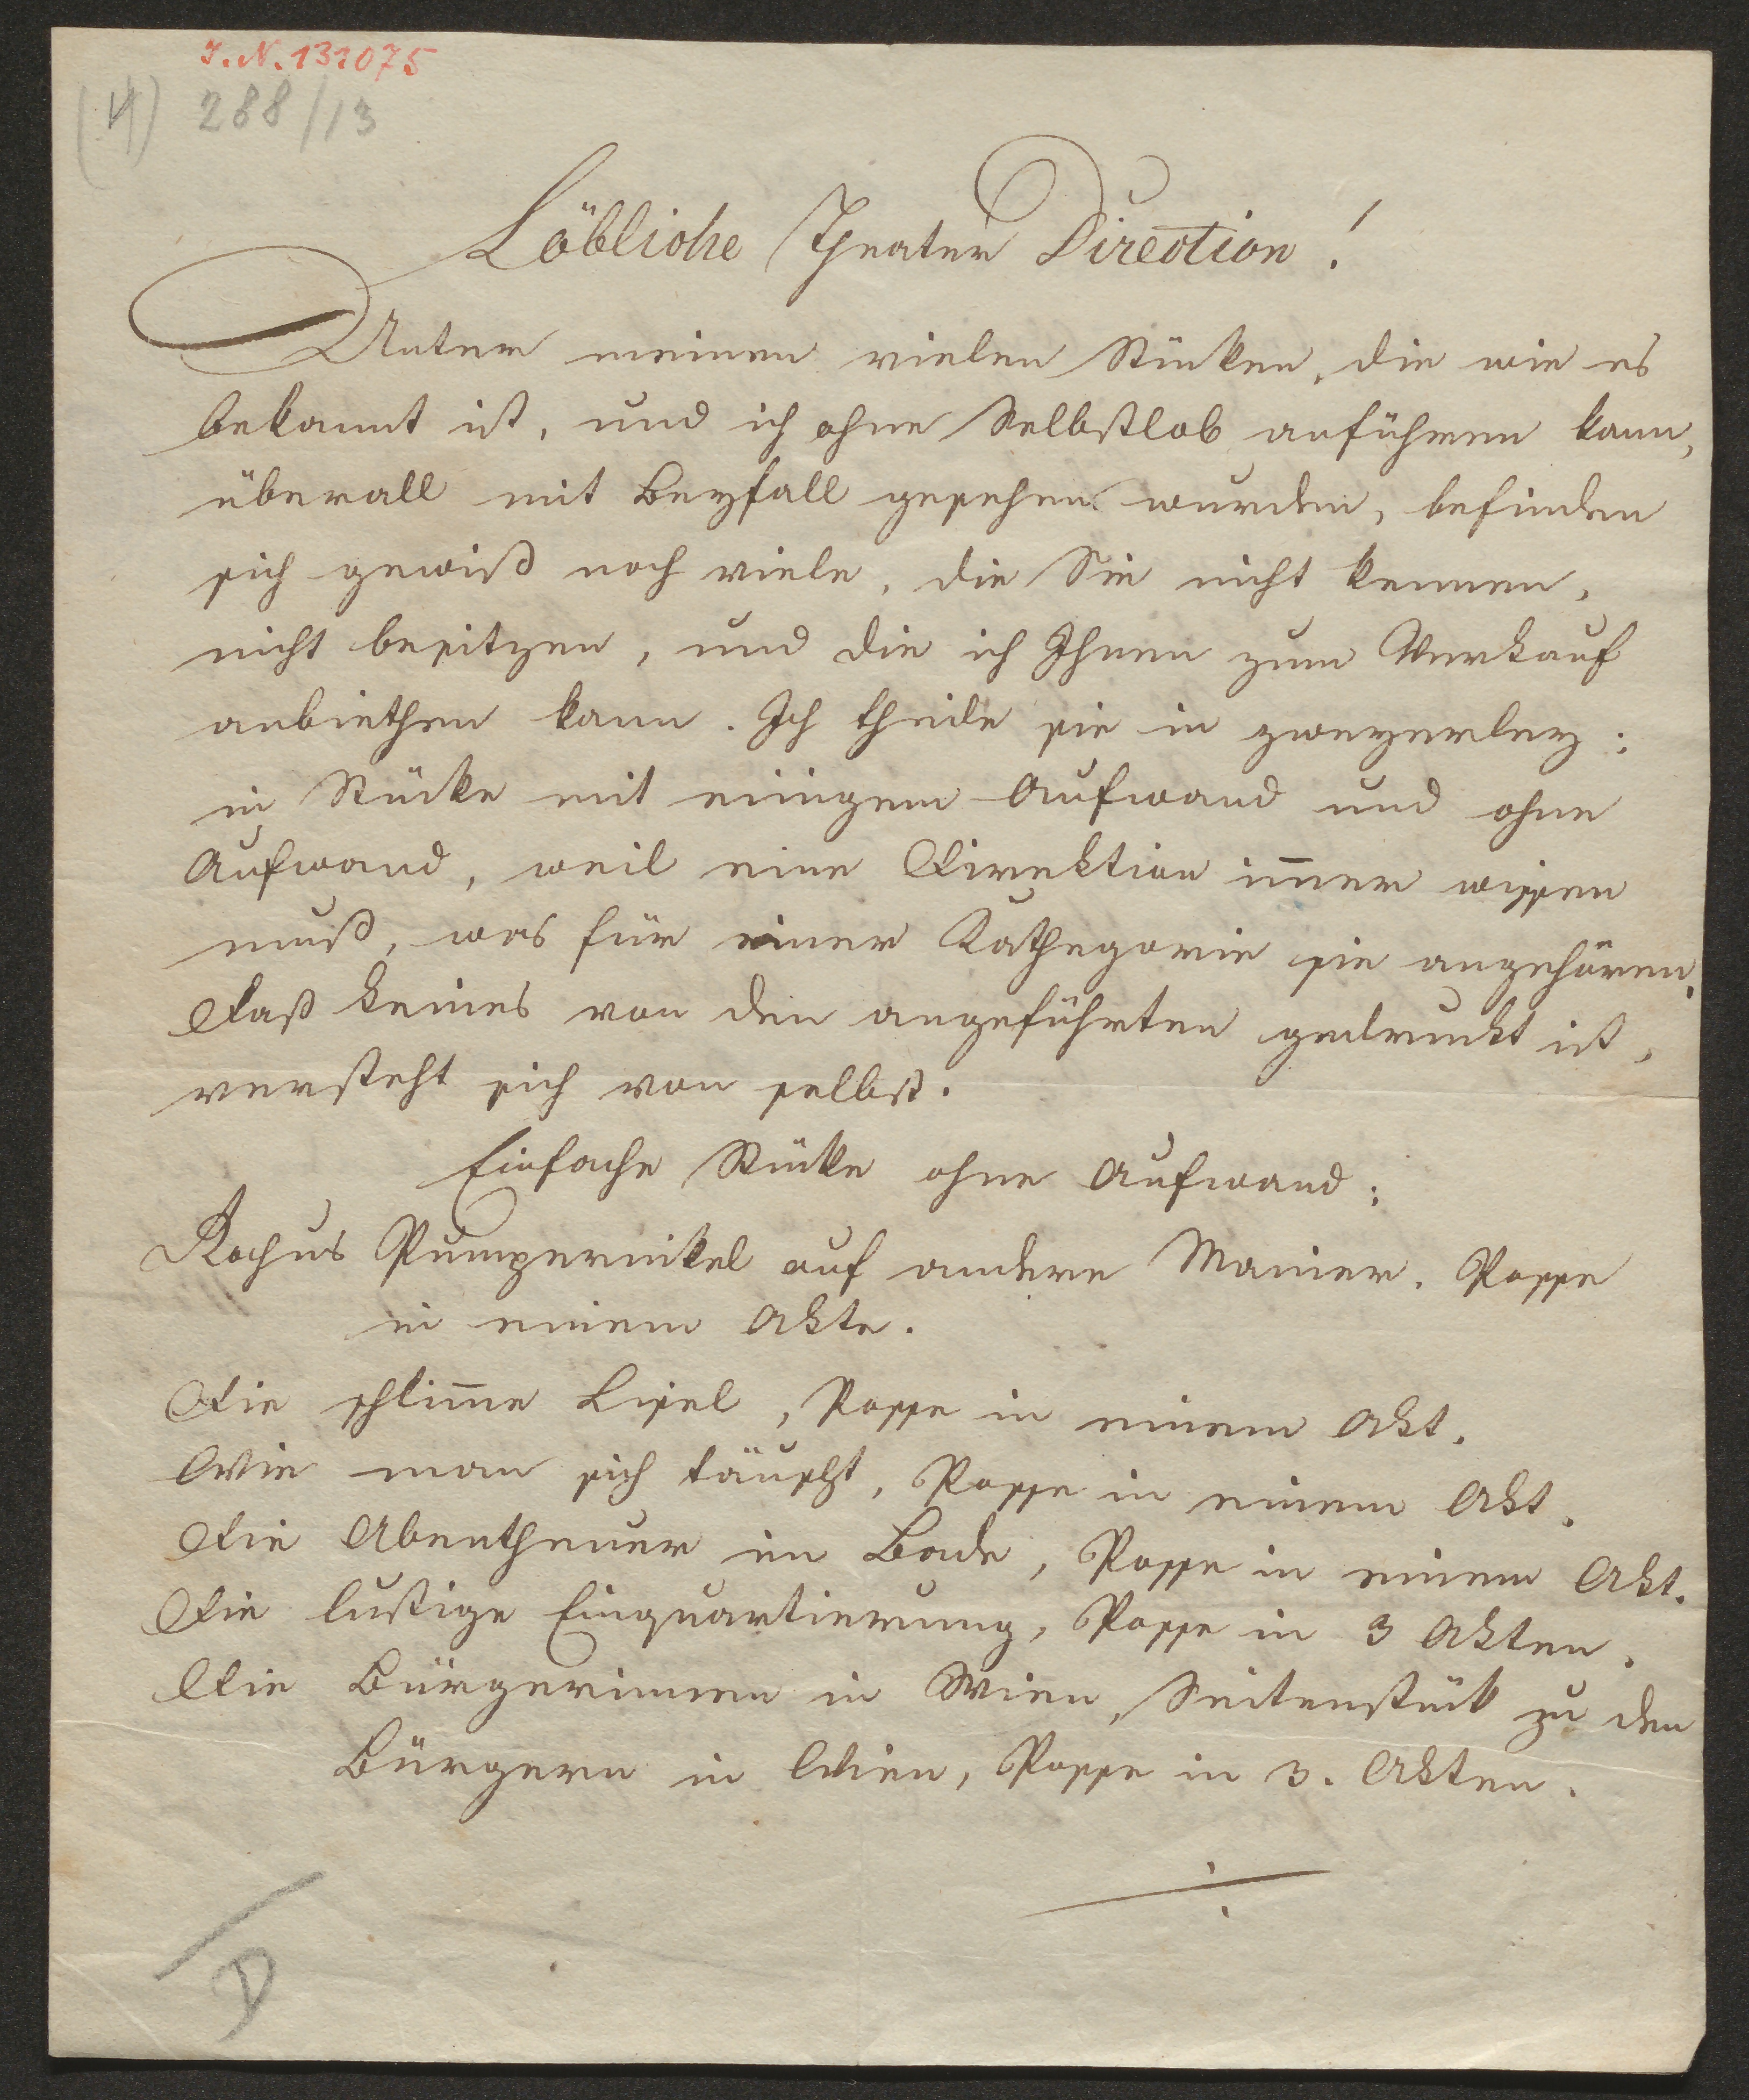 I. N. 131075
(4) 288/13
Löbliche Theater Direction!
Unter meinen vielen Stücken, die wie es
bekannt ist, und ich ohne Selbstlob anführen kann,
überall mit Beyfall gesehen wurden, befinden
sich gewiß noch viele, die Sie nicht kennen,
nicht besitzen, und die ich Ihnen zum Verkauf
anbiethen kann. Ich theile sie in zweyerley:
in Stücke mit einigem Aufwand und ohne
Aufwand, weil eine Direktion im̅er wissen
muß, was für einer Kathegorie sie angehören.
Daß keines von den angeführten gedruckt ist,
versteht sich von selbst.
Einfache Stücke ohne Aufwand:
Rochus Pumpernikel auf andere Manier. Posse
in einem Akte.
Die schlim̅e Lisel, Posse in einem Akt.
Wie man sich täuscht, Posse in einem Akt.
Die Abentheuer im Bade, Posse in einem Akt.
Die lustige Einquartierung, Posse in 3 Akten.
Die Bürgerinnen in Wien, Seitenstück zu den
Bürgern in Wien, Posse in 3. Akten.
D